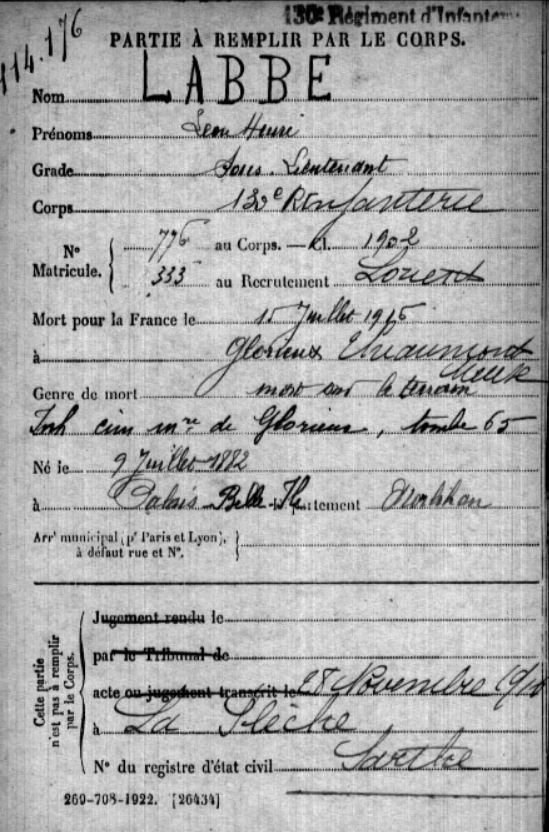 130e Régiment d'Infanterie
114.176
PARTIE À REMPLIR PAR LE CORPS.
Nom LABBE
Prénoms Leon Henri
Grade Sous-Lieutenant
Corps 130e R Infanterie
N° Matricule. 776 au Corps. — Cl. 1902
333 au Recrutement Lorient
Mort pour la France le 15 Juillet 1916
à Glorieux Thiaumont
Meuse
Genre de mort mort sur le terrain
Inh cim mre de Glorieux, tombe 65
Né le 9 Juillet 1882
à Palais Belle-Ile Département Morbihan
Arrt municipal (pr Paris et Lyon),
à défaut rue et N°.
Cette partie n'est pas à remplir par le Corps.
Jugement rendu le
par le Tribunal de
acte ou jugement transcrit le 28 Novembre 1916
à La Flèche
N° du registre d'état civil Sarthe
269-708-1922. [26434]